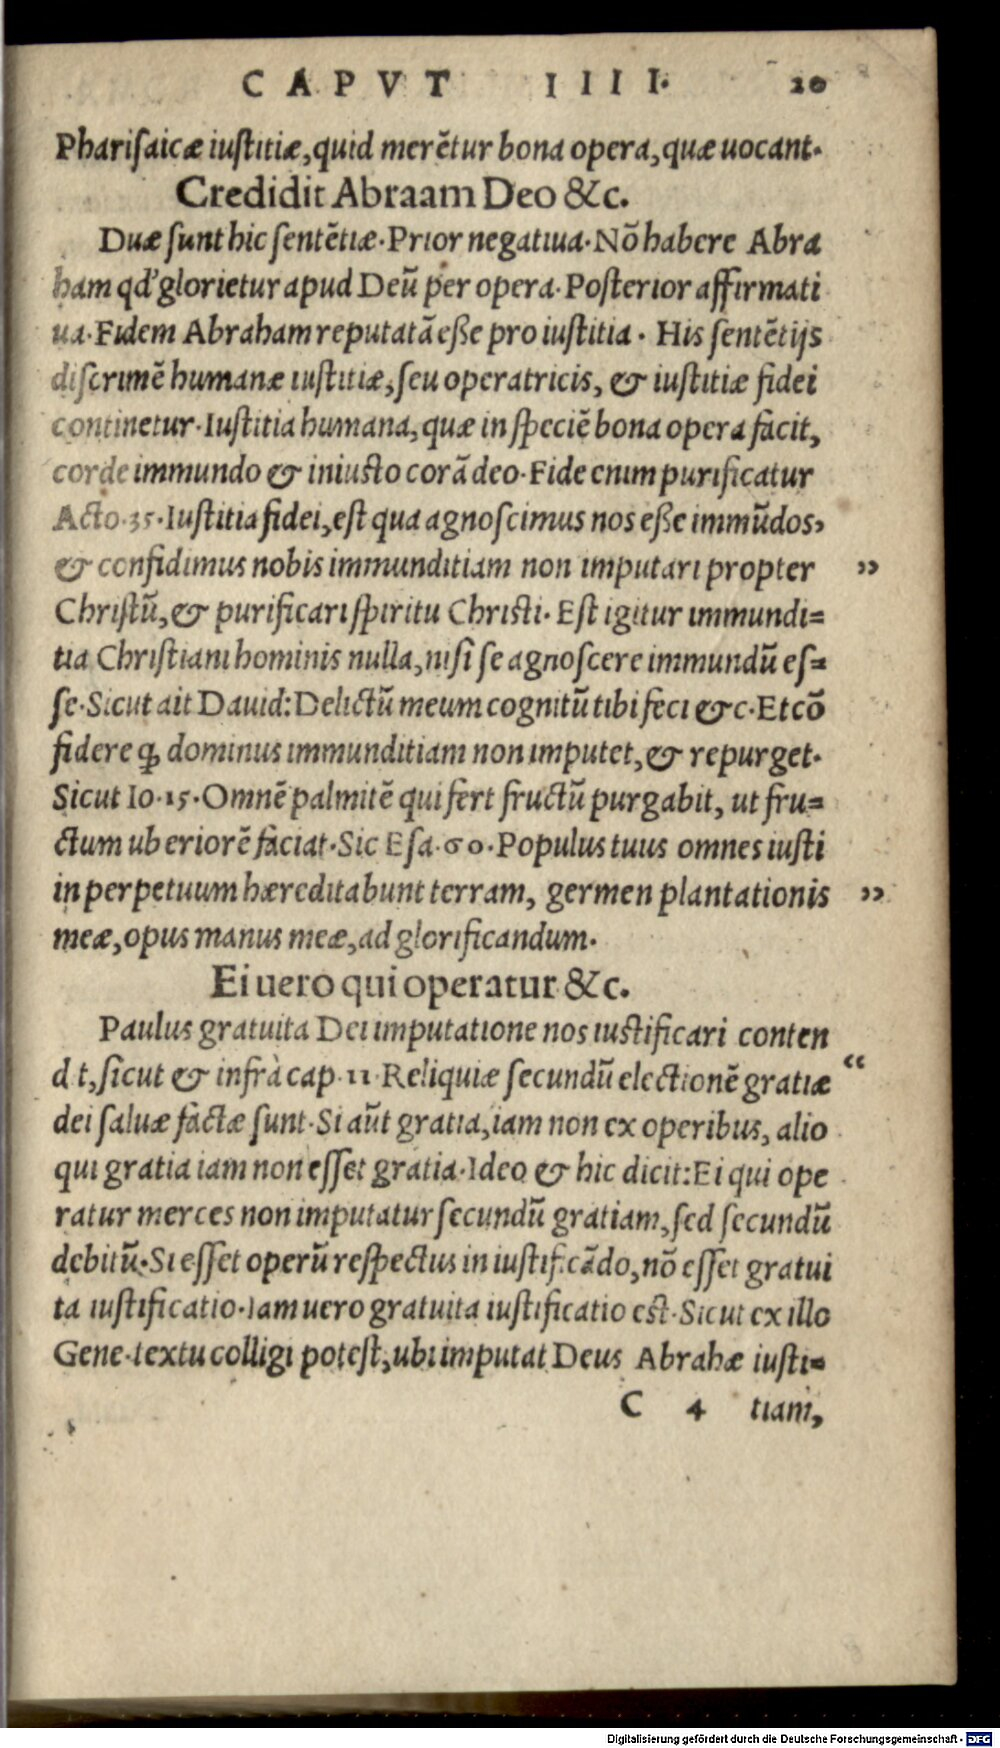 CAPVT IIII. 20
Pharisaicæ iustitiæ, quid merẽtur bona opera, quæ uocant.
Credidit Abraam Deo &c.
Duæ sunt hic sentẽtiæ. Prior negatiua. Nõ habere Abra
ham qđ glorietur apud Deũ per opera. Posterior affirmati
ua. Fidem Abraham reputatã esse pro iustitia. His sentẽtijs
discrimẽ humanæ iustitiæ, seu operatricis, & iustitiæ fidei
continetur. Iustitia humana, quæ in speciẽ bona opera facit,
corde immundo & iniusto corã deo. Fide enim purificatur
Acto. 35. Iustitia fidei, est qua agnoscimus nos esse immũdos,
& confidimus nobis immunditiam non imputari propter ”
Christũ, & purificari spiritu Christi. Est igitur immundi=
tia Christiani hominis nulla, nisi se agnoscere immundũ es=
se. Sicut ait Dauid: Delictũ meum cognitũ tibi feci &c. Et cõ
fidere ꝙ dominus immunditiam non imputet, & repurget.
Sicut Io. 15. Omnẽ palmitẽ qui fert fructũ purgabit, ut fru=
ctum uberiorẽ faciat. Sic Esa. 60. Populus tuus omnes iusti
in perpetuum hæreditabunt terram, germen plantationis ”
meæ, opus manus meæ, ad glorificandum.
Ei uero qui operatur &c.
Paulus gratuita Dei imputatione nos iustificari conten
d t, sicut & infrà cap. 11. Reliquiæ secundũ electionẽ gratiæ “
dei saluæ factæ sunt. Si aũt gratia, iam non ex operibus, alio
qui gratia iam non esset gratia. Ideo & hic dicit: Ei qui ope
ratur merces non imputatur secundũ gratiam, sed secundũ
debitũ. Si esset operũ respectus in iustificãdo, nõ esset gratui
ta iustificatio. Iam uero gratuita iustificatio est. Sicut ex illo
Gene. textu colligi potest, ubi imputat Deus Abrahæ iusti=
C 4 tiam,
Digitalisierung gefördert durch die Deutsche Forschungsgemeinschaft - DFG